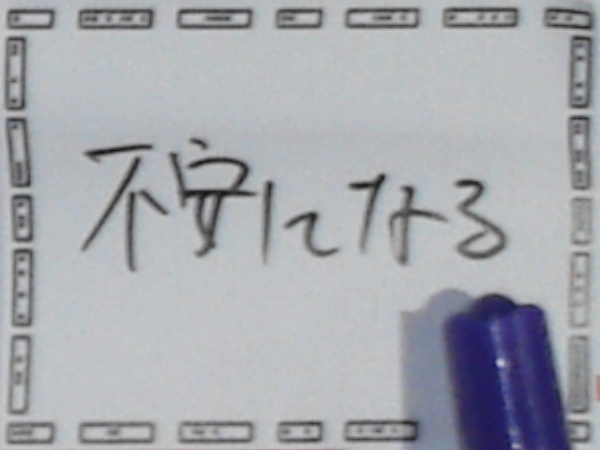 不安になる